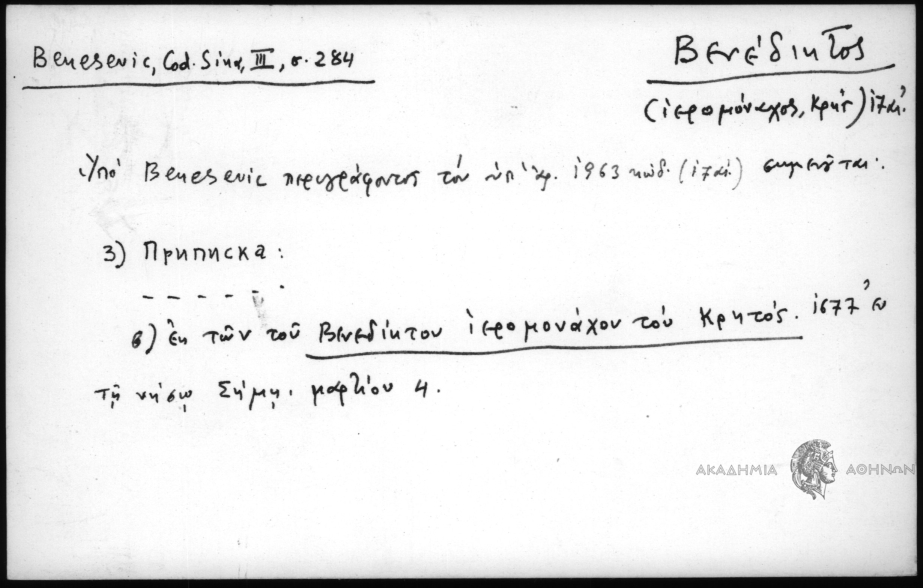 Benesevic, Cod. Sina, III, σ. 284
Βενέδικτος
(ἱερομόναχος, Κρής) 17 αἰ.
Ὑπό Benesevic περιγράφοντος τόν ὑπ' ἀρ. 1963 κώδ. (17 αἰ.) σημειοῦται:
3) Приписка:
- - - - - -
в) ἐκ τῶν τοῦ Βενεδίκτου ἱερομονάχου τοῦ Κρητός. 1677 ἐν
τῇ νήσῳ Σήμῃ. μαρτίου 4.
ΑΚΑΔΗΜΙΑ ΑΘΗΝΩΝ